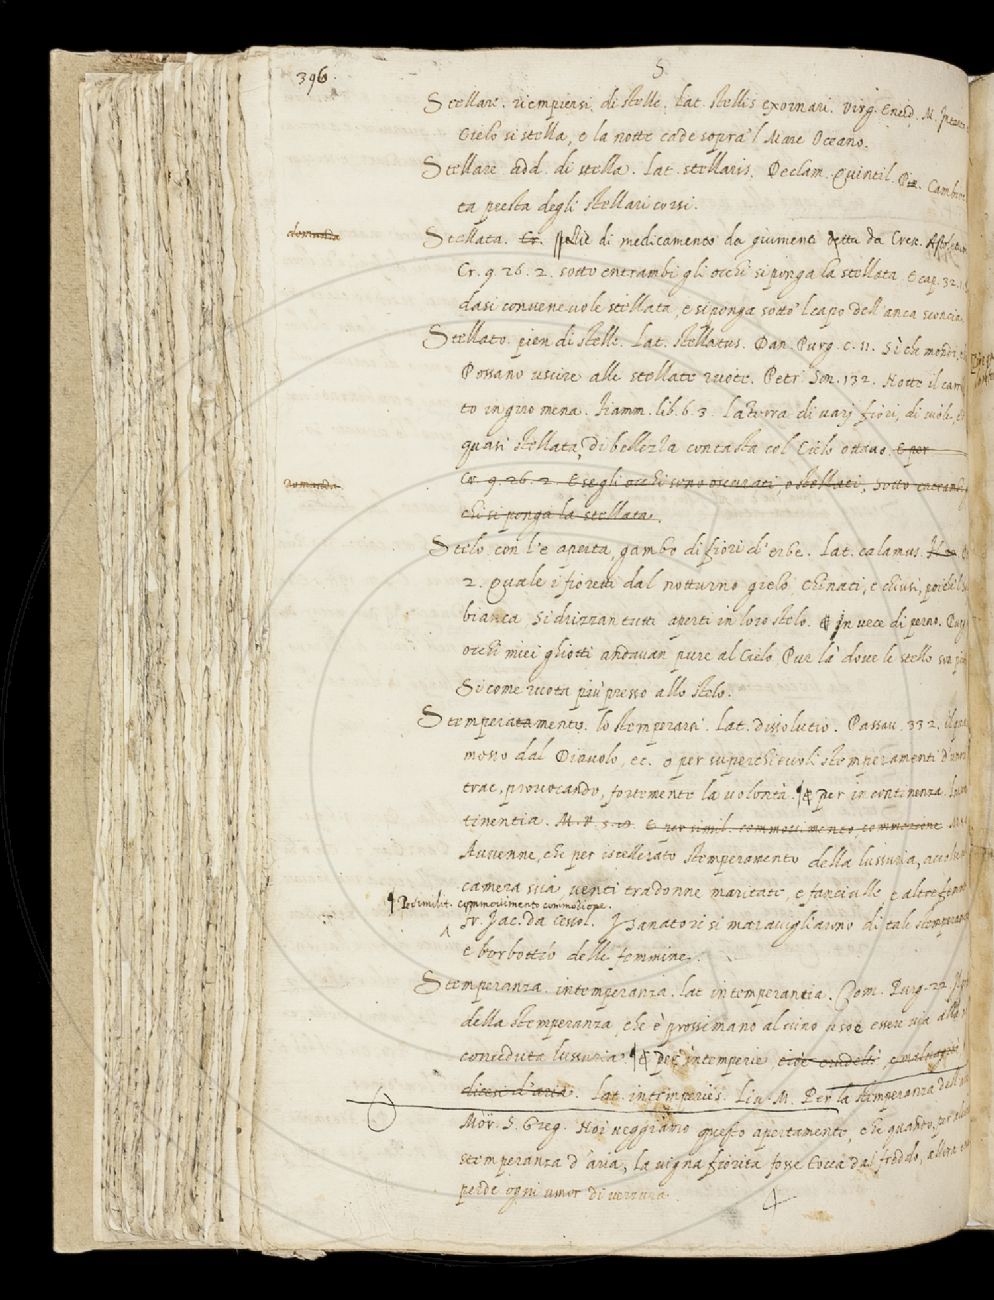 396.
S
Stellare. riempiersi di stelle. Lat. stellis exornari. Virg. Eneid. M.
Cielo si stella, e la notte cade sopra 'l Mare Oceano.
Stellare add. di stella. Lat. stellaris. Declam. Quintil.
ta presta degli stellari corsi.
domanda
Stellata. Cr. spezie di medicamento da giumenti detta da Cresc.
Cr. 9. 26. 2. sotto entrambi gli occhi si ponga la stellata. E cap. 32.
dasi convenevole stellata, e si ponga sotto 'l capo dell'anca sconcia
Stellato. pien di stelle. Lat. stellatus. Dan. Purg. c. 11. Sì che mondi,
Possano uscire alle stellate ruote. Petr. Son. 132. Notte il car
to in giro mena. Fiamm. lib. 6. 3. la terra di varj fiori, di viole,
quasi stellata, di bellezza contasta col Cielo ottavo. E per
domanda
Cr. 9. 26. 2. E se gli occhi sono oscurati, o stellati, sotto entrambi
chi si ponga la stellata.
Stelo, con l'e aperta, gambo di fiori, d'erbe. Lat. calamus.
2. Quale i fioretti dal notturno gielo, Chinati, e chiusi, poiche 'l
bianca, Si drizzan tutti aperti in loro stelo. In vece di perno.
occhi miei ghiotti andavan pure al Cielo, Pur là dove le stelle son
Sì come ruota più presso allo stelo.
Stemperatamento. lo stemperare. Lat. dissolutio. Passav. 332.
mosso dal Diavolo, ec. o per superchievoli stemperamenti d'
trae, provocando, fortemente la volontà. per incontinenza.
tinentia. M. V. E per simil. commovimento, commozione
Avvenne, che per iscellerato stemperamento della lussuria,
camera sua, venti tra donne maritate, e fanciulle, e altre
Per similit. commovimento commozione.
Fr. Jac. da Cessol. I Sanatori si maravigliarono di tale
e borbottìo delle femmine.
Stemperanza. intemperanza. lat. intemperantia. Com. Purg. 22.
della stemperanza, che è prossimano al vino
conceduta lussuria. per intemperie,
dicesi d'aria. Lat. intemperies. Liv. M. Per la stemperanza dell'
Mor. S. Greg. Noi veggiamo questo apertamente, che quando,
stemperanza d'aria, la vigna fiorita fosse tocca dal freddo, allora
perde ogni umor di verzura.